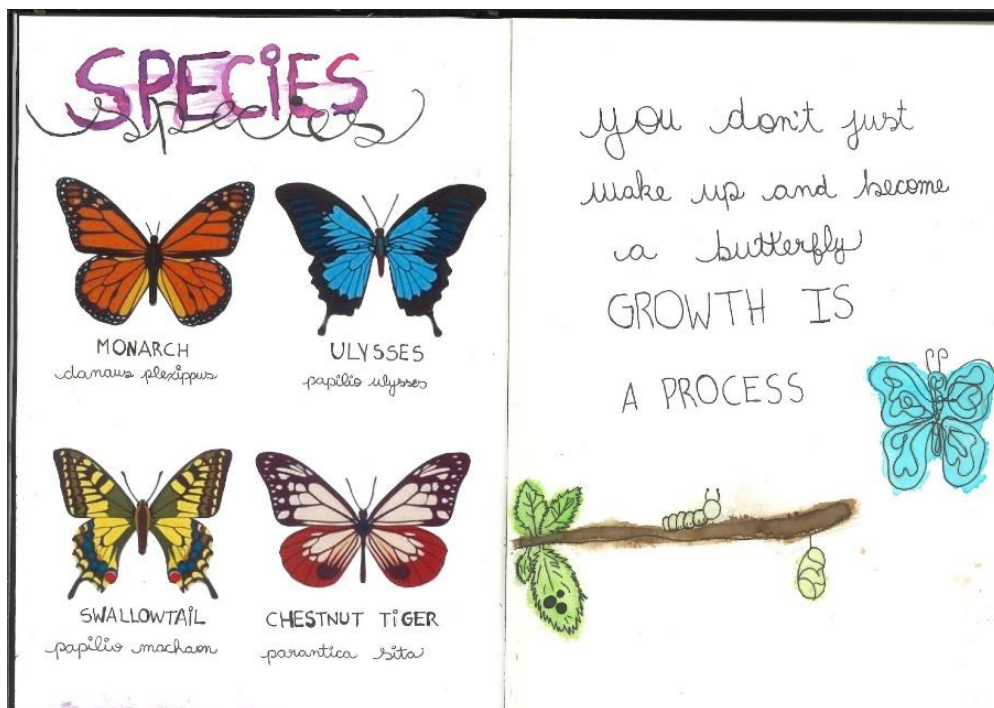 SPECiES
species
MONARCH
danaus plexippus
ULYSSES
papilio ulysses
SWALLOWTAiL
papilio machaon
CHESTNUT TiGER
parantica sita
you don't just
wake up and become
a butterfly
GROWTH IS
A PROCESS